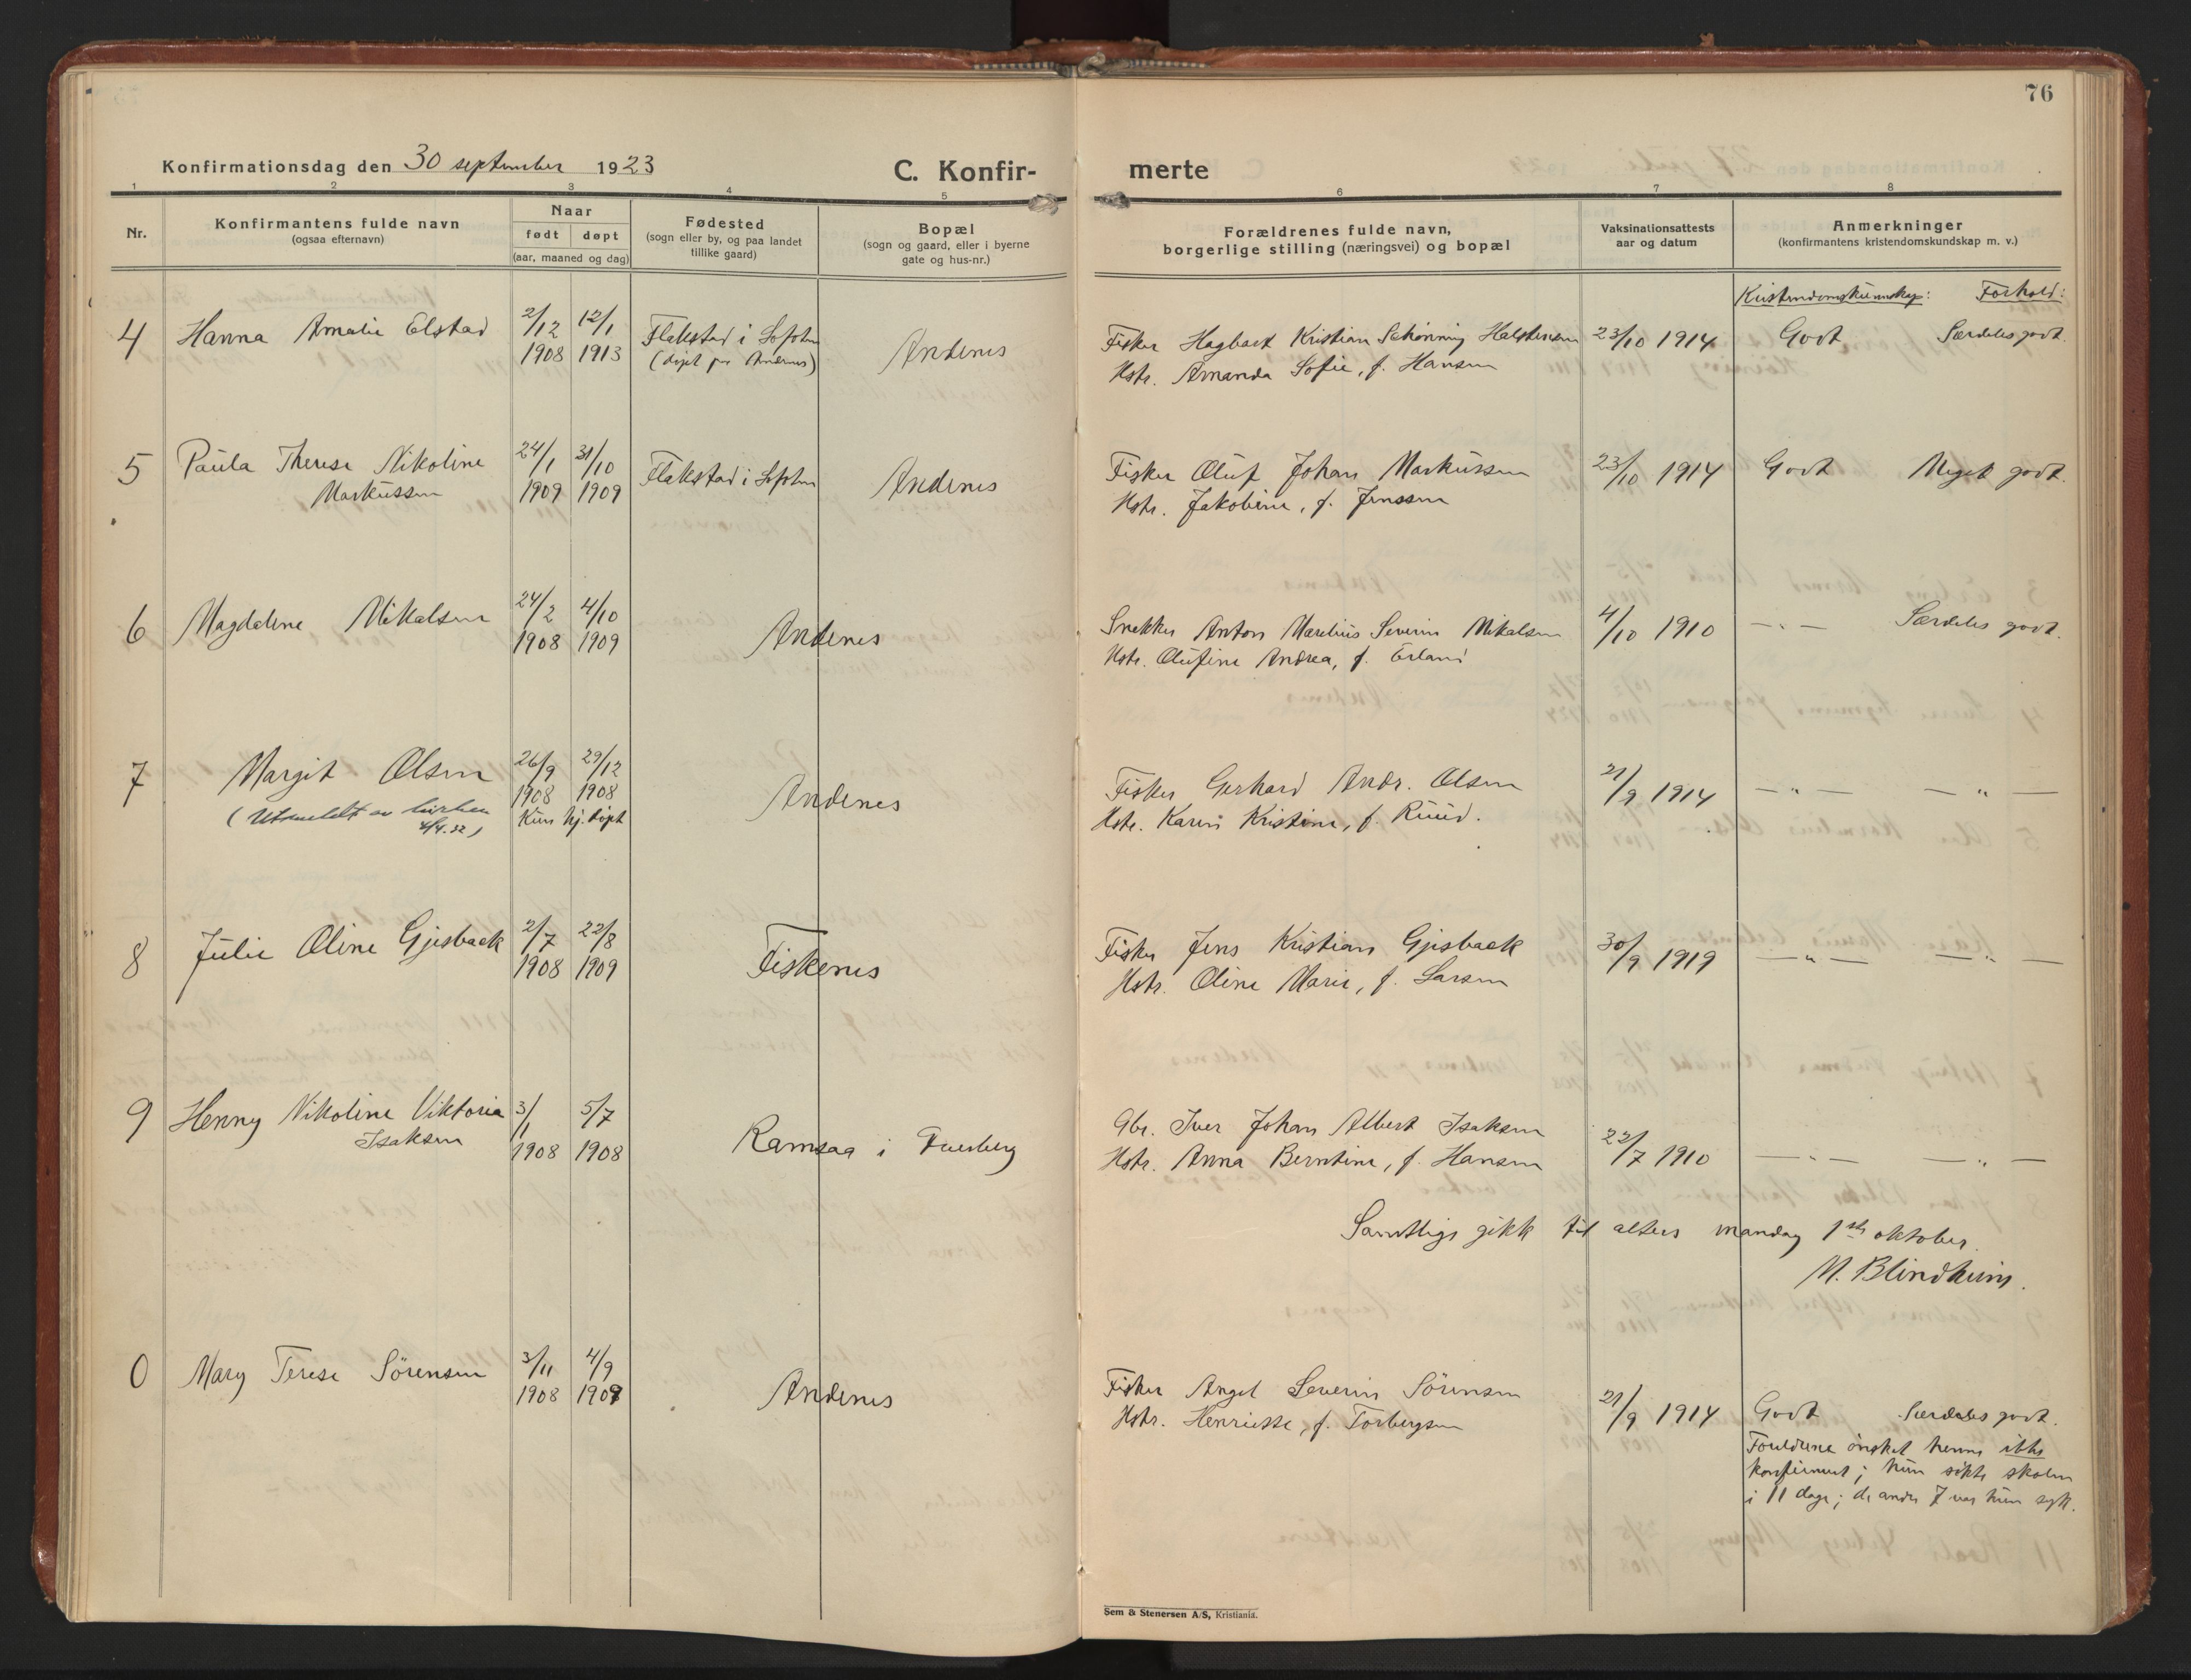 76
Konfirmationsdag den 30 september 1923
C. Konfir-
merte
1 2 3 4 5 6 7 8
Nr.
Konfirmantens fulde navn
(ogsaa efternavn)
Naar
født døpt
(aar, maaned og dag)
Fødested
(sogn eller by, og paa landet
tillike gaard)
Bopæl
(sogn og gaard, eller i byerne
gate og hus-nr.)
Forældrenes fulde navn,
borgerlige stilling (næringsvei) og bopæl
Vaksinationsattests
aar og datum
Anmerkninger
(konfirmantens kristendomskundskap m. v.)
Kristendomskunnskap: Forhold:
4 Hanna Amalie Elstad 2/12 12/1 Flakstad i Lofoten Andenes Fisker Hagbart Kristian Schønning Halstensen 23/10 1914 Godt Særdeles godt.
1908 1913 (døpt paa Andenes) Hstr. Amanda Sofie, f. Hansen
5 Paula Therese Nikoline 24/1 31/10 Flakstad i Lofoten Andenes Fisker Oluf Johan Markussen 23/10 1914 Godt Meget godt.
Markussen 1909 1909 Hstr. Jakobine, f. Jenssen
6 Magdalene Mikalsen 24/2 4/10 Andenes Snekker Anton Marelius Severin Mikalsen 4/10 1910 — " — Særdeles godt.
1908 1909 Hstr. Olufine Andrea, f. Erland
7 Margit Olsen 26/9 29/12 Andenes Fisker Gerhard Andr. Olsen 21/9 1914 — " — — " —
1908 1908 Hstr. Karen Kristine, f. Ruud.
(Utmeldt av kirken Kun hj. døpt
4/4.22)
8 Julie Oline Gjesbaek 2/7 22/8 Fiskenes Fisker Jens Kristian Gjesbaek 30/9 1919 — " — — " —
1908 1909 Hstr. Oline Marie, f. Larsen
9 Henny Nikoline Viktoria 3/1 5/7 Ramsaa i Dverberg Gbr. Iver Johan Albert Isaksen 22/7 1910 — " — — " —
Isaksen 1908 1908 Hstr. Anna Berntine, f. Hansen
Samtlige gikk til alters mandag 1ste oktober.
M. Blindheim.
0 Mary Terese Sörensen 3/11 4/9 Andenes Fisker Angel Severin Sörensen 21/9 1914 Godt Særdeles godt.
1908 1909 Hstr. Henriette, f. Torbergsen
Foreldrene önsket henne ikke
konfirmert; hun sökte skolen
i 11 dage; de andre 7 var hun syk.
Sem & Stenersen A/S, Kristiania.